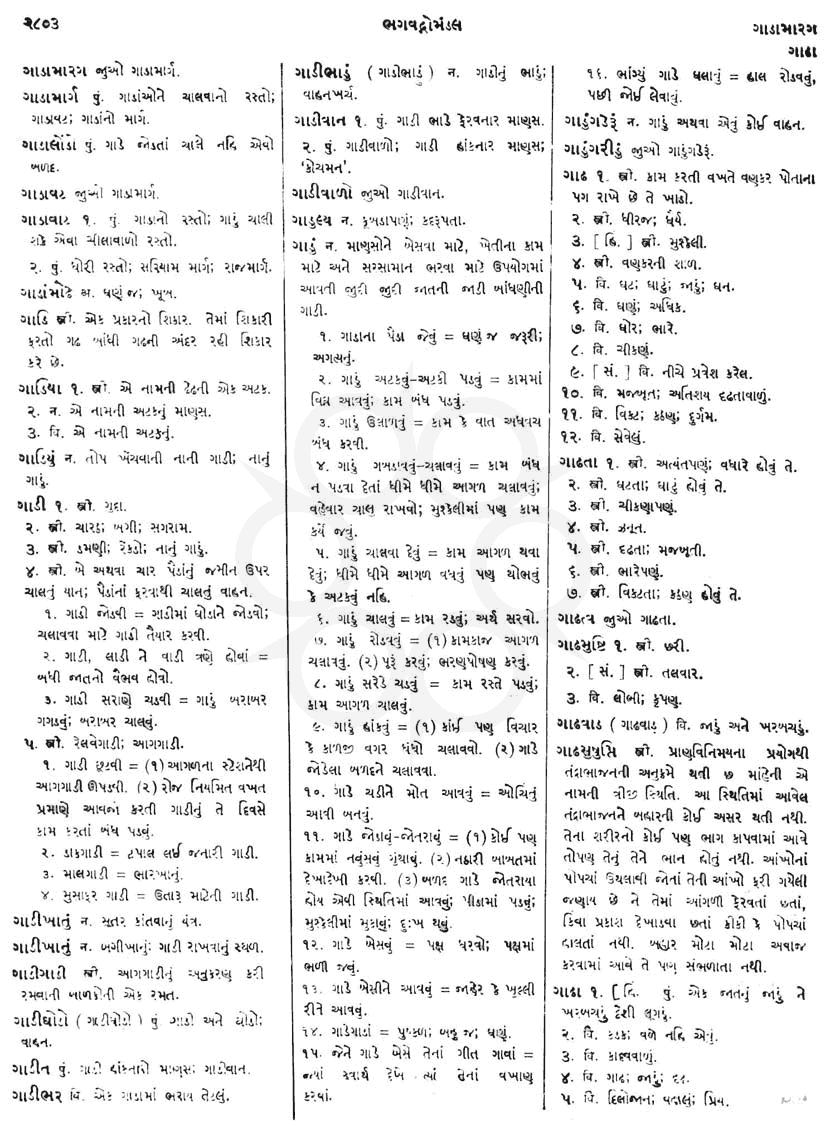 ૨૮૦૩
ભગવદ્ગોમંડલ
ગાડામારગ
ગાઢા
ગાડામારગ જુઓ ગાડામાર્ગ.
ગાડામાર્ગ પું. ગાડાંઓને ચાલવાનો રસ્તો;
ગાડાવટ; ગાડાંનો માર્ગ.
ગાડાલોંડો પું. ગાડે જોડતાં ચાલે નહિ એવો
બળદ.
ગાડાવટ જુઓ ગાડામાર્ગ.
ગાડાવાટ ૧. પું. ગાડાનો રસ્તો; ગાડું ચાલી
શકે એવા ચીલાવાળો રસ્તો.
૨. પું. ધોરી રસ્તો; સરિયામ માર્ગ; રાજમાર્ગ.
ગાડાંમોઢે અ. ઘણું જ; ખૂબ.
ગાડિ સ્ત્રી. એક પ્રકારનો શિકાર. તેમાં શિકારી
ફરતો ગઢ બાંધી ગઢની અંદર રહી શિકાર
કરે છે.
ગાડિયા ૧. સ્ત્રી. એ નામની ઢેઢની એક અટક.
૨. ન. એ નામની અટકનું માણસ.
૩. વિ. એ નામની અટકનું.
ગાડિયું ન. તોપ ખેંચવાની નાની ગાડી; નાનું
ગાડું.
ગાડી ૧. સ્ત્રી. ગુદા.
૨. સ્ત્રી. ચારટ; બગી; સગરામ.
૩. સ્ત્રી. ડમણી; રેંકડો; નાનું ગાડું.
૪. સ્ત્રી. બે અથવા ચાર પૈડાંનું જમીન ઉપર
ચાલતું યાન; પૈડાંના ફરવાથી ચાલતું વાહન.
૧. ગાડી જોડવી = ગાડીમાં ઘોડાને જોડવો;
ચલાવવા માટે ગાડી તૈયાર કરવી.
૨. ગાડી, લાડી ને વાડી ત્રણે હોવાં =
બધી જાતનો વૈભવ હોવો.
૩. ગાડી સરાણે ચડવી = ગાડું બરાબર
ગગડવું; બરાબર ચાલવું.
૫. સ્ત્રી. રેલવેગાડી; આગગાડી.
૧. ગાડી છૂટવી = (૧) આગળના સ્ટેશનેથી
આગગાડી ઊપડવી. (૨) રોજ નિયમિત વખત
પ્રમાણે આવજા કરતી ગાડીનું તે દિવસે
કામ કરતાં બંધ પડવું.
૨. ડાકગાડી = ટપાલ લઈ જનારી ગાડી.
૩. માલગાડી = ભારખાનું.
૪. મુસાફર ગાડી = ઉતારુ માટેની ગાડી.
ગાડીખાતું ન. સૂતર કાંતવાનું યંત્ર.
ગાડીખાનું ન. બગીખાનું; ગાડી રાખવાનું સ્થળ.
ગાડીગાડી સ્ત્રી. આગગાડીનું અનુકરણ કરી
રમવાની બાળકોની એક રમત.
ગાડીઘોડો (ગાડીઘોડો) પું. ગાડી અને ઘોડો;
વાહન.
ગાડીત પું. ગાડી હાંકનારો માણસ; ગાડીવાન.
ગાડીભર વિ. એક ગાડામાં ભરાય તેટલું.
ગાડીભાડું (ગાડીભાડું) ન. ગાડીનું ભાડું;
વાહનખર્ચ.
ગાડીવાન ૧. પું. ગાડી ભાડે ફેરવનાર માણસ.
૨. પું. ગાડીવાળો; ગાડી હાંકનાર માણસ;
‘કોચમન’.
ગાડીવાળો જુઓ ગાડીવાન.
ગાડુલ્ય ન. કૂબડાપણું; કદરૂપતા.
ગાડું ન. માણસોને બેસવા માટે, ખેતીના કામ
માટે અને સરસામાન ભરવા માટે ઉપયોગમાં
આવતી જુદી જુદી જાતની જાડી બાંધણીની
ગાડી.
૧. ગાડાના પૈડા જેવું = ઘણું જ જરૂરી;
અગત્યનું.
૨. ગાડું અટકવું-અટકી પડવું = કામમાં
વિઘ્ન આવવું; કામ બંધ પડવું.
૩. ગાડું ઉલાળવું = કામ કે વાત અધવચ
બંધ કરવી.
૪. ગાડું ગબડાવવું-ચલાવવું = કામ બંધ
ન પડવા દેતાં ધીમે ધીમે આગળ ચલાવવું;
વહેવાર ચાલુ રાખવો; મુશ્કેલીમાં પણ કામ
કર્યે જવું.
૫. ગાડું ચાલવા દેવું = કામ આગળ થવા
દેવું; ધીમે ધીમે આગળ વધવું પણ થોભવું
કે અટકવું નહિ.
૬. ગાડું ચાલવું = કામ રડવું; અર્થ સરવો.
૭. ગાડું રોડવવું = (૧) કામકાજ આગળ
ચલાવવું. (૨) પૂરું કરવું; ભરણપોષણ કરવું.
૮. ગાડું સરેડે ચડવું = કામ રસ્તે પડવું;
કામ આગળ ચાલવું.
૯. ગાડું હાંકવું = (૧) કાંઈ પણ વિચાર
કે કાળજી વગર ધંધો ચલાવવો. (૨) ગાડે
જોડેલા બળદને ચલાવવા.
૧૦. ગાડે ચડીને મોત આવવું = ઓચિંતું
આવી બનવું.
૧૧. ગાડે જોડાવું-જોતરાવું = (૧) કોઈ પણ
કામમાં નવુંસવું ગૂંથાવું. (૨) નઠારી બાબતમાં
દેખાદેખી કરવી. (૩) બળદ ગાડે જોતરાયા
હોય એવી સ્થિતિમાં આવવું; પીડામાં પડવું;
મુશ્કેલીમાં મુકાવું; દુઃખ થવું.
૧૨. ગાડે બેસવું = પક્ષ ધરવો; પક્ષમાં
ભળી જવું.
૧૩. ગાડે બેસીને આવવું = જાહેર કે ખુલ્લી
રીતે આવવું.
૧૪. ગાડેગાડાં = પુષ્કળ; બહુ જ; ઘણું.
૧૫. જેને ગાડે બેસે તેનાં ગીત ગાવાં =
જ્યાં સ્વાર્થ દેખે ત્યાં તેનાં વખાણ
કરવાં.
૧૬. ભાંગ્યું ગાડે ધલાવવું = હાલ રોડવવું,
પછી જોઈ લેવાવું.
ગાડુંગડેરૂં ન. ગાડું અથવા એવું કોઈ વાહન.
ગાડુંગરીડું જુઓ ગાડુંગડેરૂં.
ગાઢ ૧. સ્ત્રી. કામ કરતી વખતે વણકર પોતાના
પગ રાખે છે તે ખાડો.
૨. સ્ત્રી. ધીરજ; ધૈર્ય.
૩. [ હિં. ] સ્ત્રી. મુશ્કેલી.
૪. સ્ત્રી. વણકરની શાળ.
૫. વિ. ઘટ; ઘાટું; જાડું; ઘન.
૬. વિ. ઘણું; અધિક.
૭. વિ. ઘોર; ભારે.
૮. વિ. ચીકણું.
૯. [ સં. ] વિ. નીચે પ્રવેશ કરેલ.
૧૦. વિ. મજબૂત; અતિશય દૃઢતાવાળું.
૧૧. વિ. વિકટ; કઠણ; દુર્ગમ.
૧૨. વિ. સેવેલું.
ગાઢતા ૧. સ્ત્રી. અત્યંતપણું; વધારે હોવું તે.
૨. સ્ત્રી. ઘટતા; ઘાટું હોવું તે.
૩. સ્ત્રી. ચીકણાપણું.
૪. સ્ત્રી. ઝનૂન.
૫. સ્ત્રી. દૃઢતા; મજબૂતી.
૬. સ્ત્રી. ભારેપણું.
૭. સ્ત્રી. વિકટતા; કઠણ હોવું તે.
ગાઢત્વ જુઓ ગાઢતા.
ગાઢમુષ્ટિ ૧. સ્ત્રી. છરી.
૨. [ સં. ] સ્ત્રી. તલવાર.
૩. વિ. લોભી; કૃપણ.
ગાઢવાડ (ગાઢવાડ) વિ. જાડું અને ખરબચડું.
ગાઢસુષુપ્તિ સ્ત્રી. પ્રાણવિનિમયના પ્રયોગથી
તંદ્રાભાજનની અનુક્રમે થતી છ માંહેની એ
નામની ત્રીજી સ્થિતિ. આ સ્થિતિમાં આવેલ
તંદ્રાભાજનને બહારની કોઈ અસર થતી નથી.
તેના શરીરનો કોઈ પણ ભાગ કાપવામાં આવે
તોપણ તેનું તેને ભાન હોતું નથી. આંખોનાં
પોપચાં ઉઘલાવી જોતાં તેની આંખો ફરી ગયેલી
જણાય છે ને તેમાં આંગળી ફેરવતાં છતાં,
કિંવા પ્રકાશ દેખાડવા છતાં કીકી કે પોપચાં
હાલતાં નથી. બહાર મોટા મોટા અવાજ
કરવામાં આવે તે પણ સંભળાતા નથી.
ગાઢા ૧. [ હિં. પું. એક જાતનું જાડું ને
ખરબચડું દેશી લૂગડું.
૨. વિ. કડક; વળે નહિ એવું.
૩. વિ. કાશવાળું.
૪. વિ. ગાઢ; જાડું; દૃઢ.
૫. વિ. દિલોજાન; વહાલું; પ્રિય.